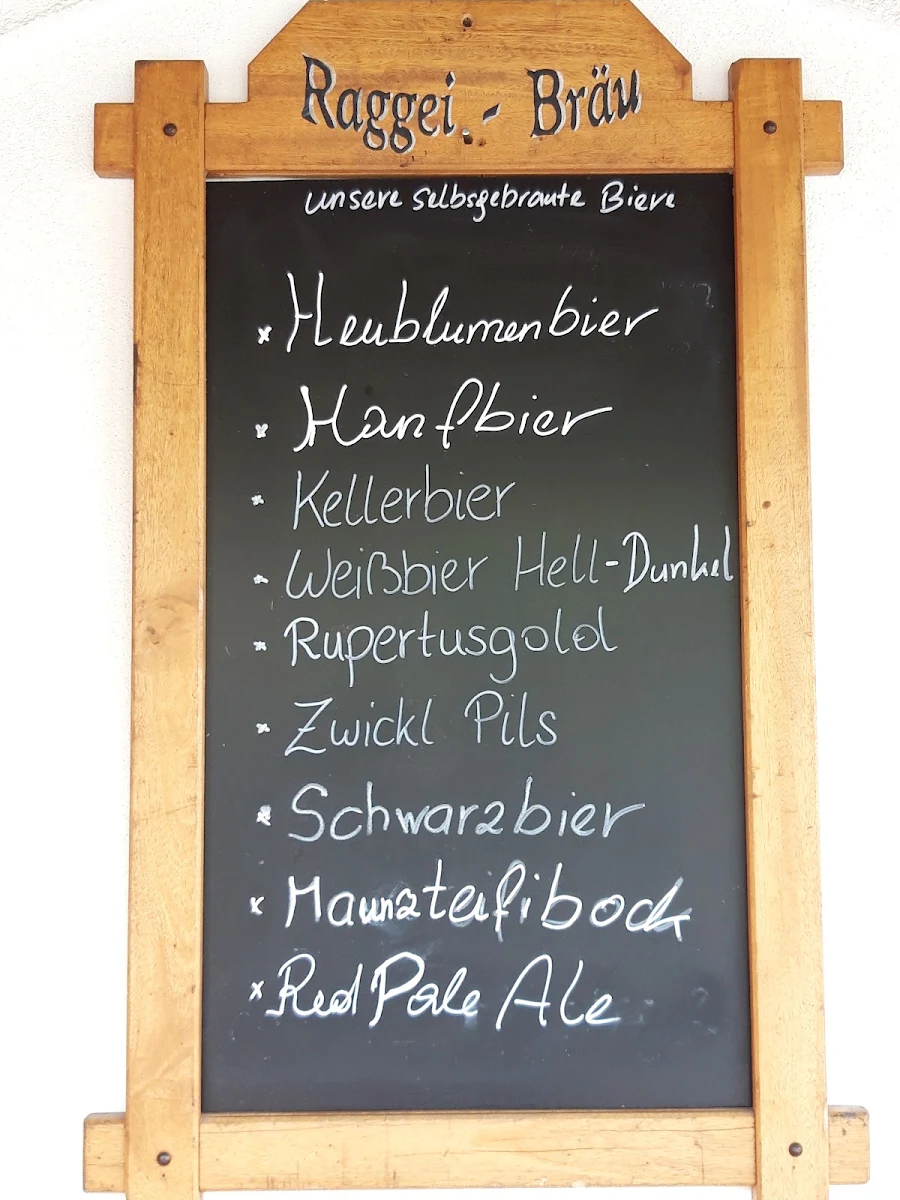 Raggei - Bräu
unsere selbsgebraute Biere
x Heublumenbier
x Hanfbier
x Kellerbier
x Weißbier Hell-Dunkel
x Rupertusgold
x Zwickl Pils
x Schwarzbier
x Maunzteifibock
x Red Pale Ale